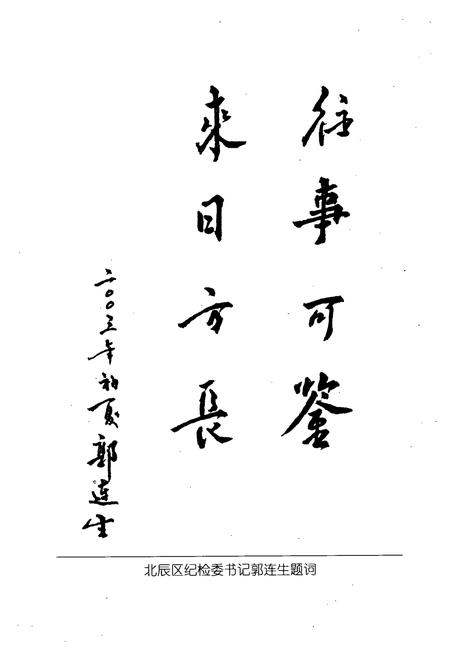 往事可鉴
來日方長
二〇〇三年初夏郭连生
北辰区纪检委书记郭连生题词